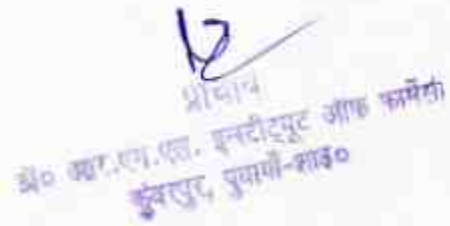 प्राचार्य
डॉ० आर.एम.एल. इन्स्टीट्यूट ऑफ फार्मेसी
पुवायाँ-शाह०